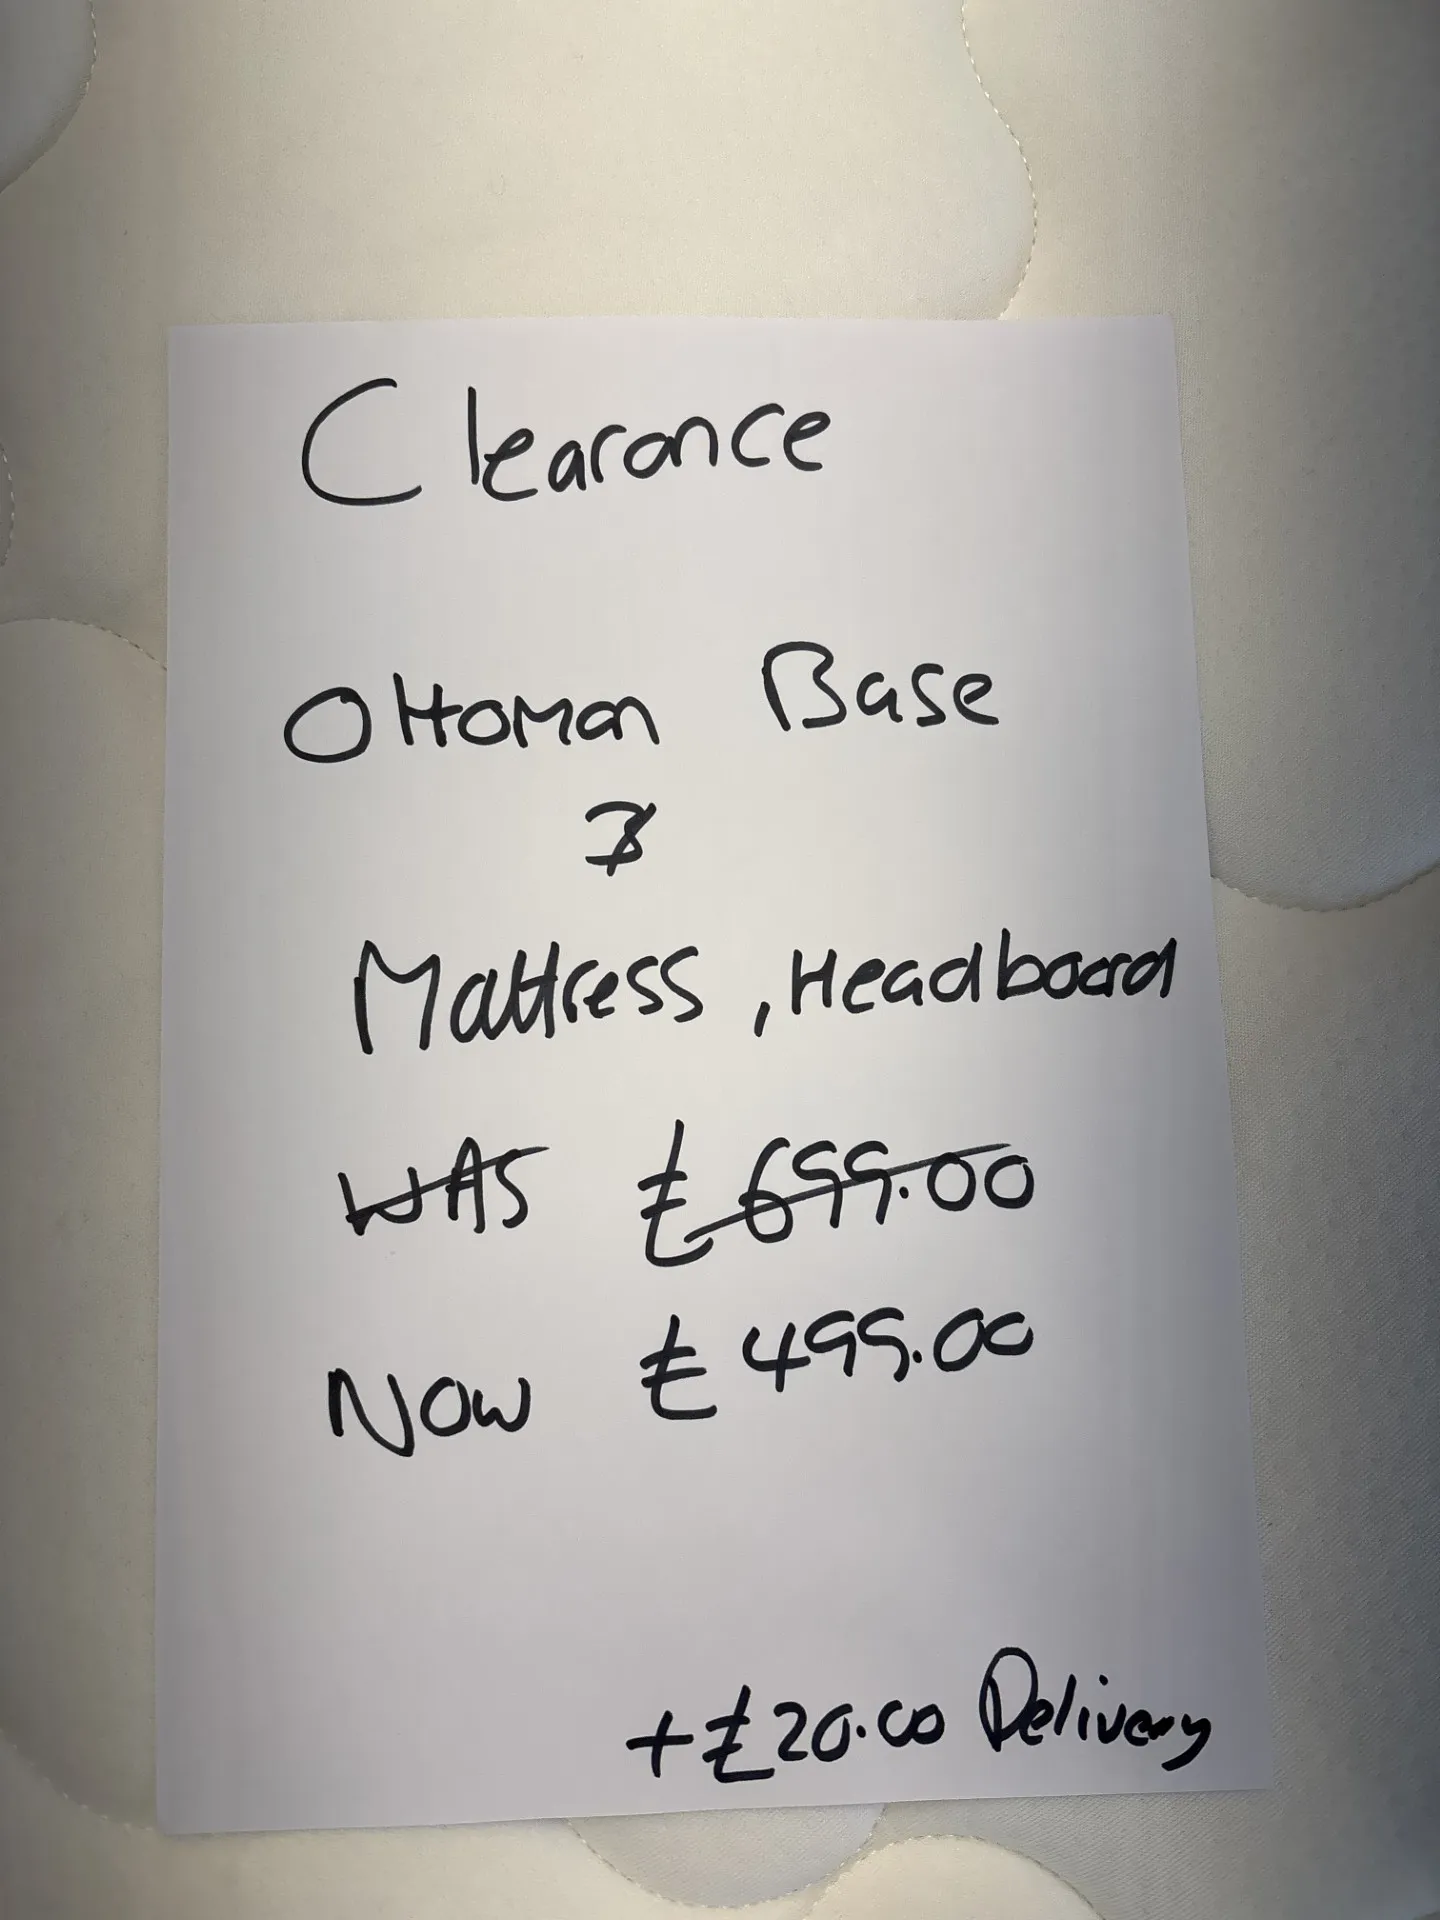 Clearance
Ottoman Base
&
Mattress, Headboard
WAS £699.00
NOW £499.00
+£20.00 Delivery